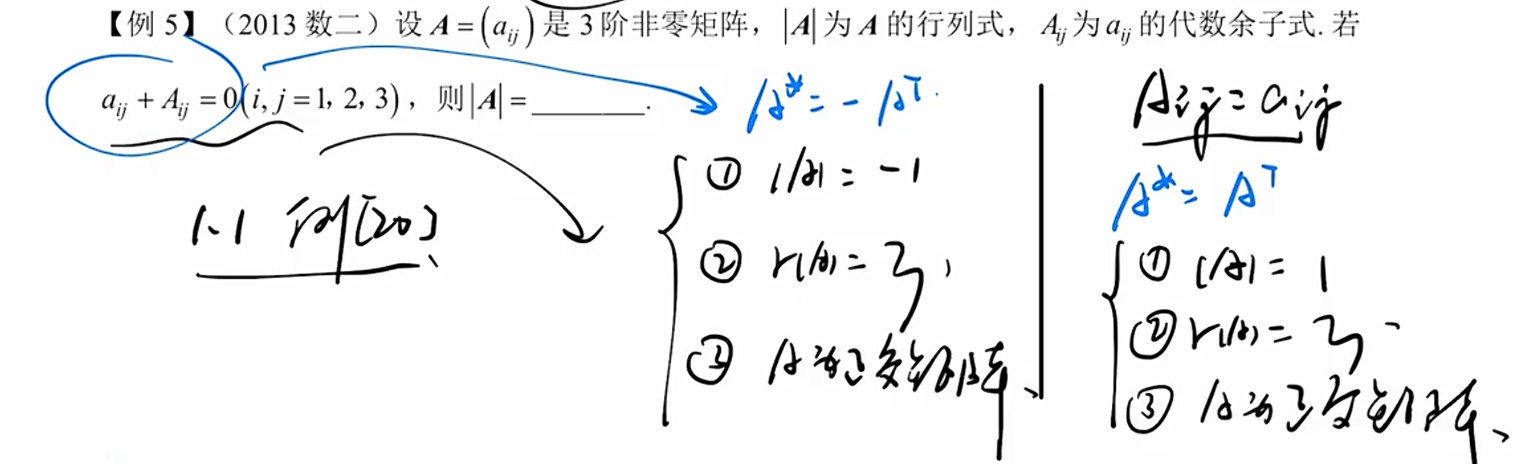 【例 5】（2013 数二）设 A = (aᵢⱼ) 是 3 阶非零矩阵，|A| 为 A 的行列式，Aᵢⱼ 为 aᵢⱼ 的代数余子式. 若
aᵢⱼ + Aᵢⱼ = 0(i, j = 1, 2, 3)，则 |A| = ________.
1.1 例[20]
A* = -Aᵀ
① |A| = -1
② r(A) = 3
③ A为正交矩阵
Aᵢⱼ = aᵢⱼ
A* = Aᵀ
① |A| = 1
② r(A) = 3
③ A为正交矩阵